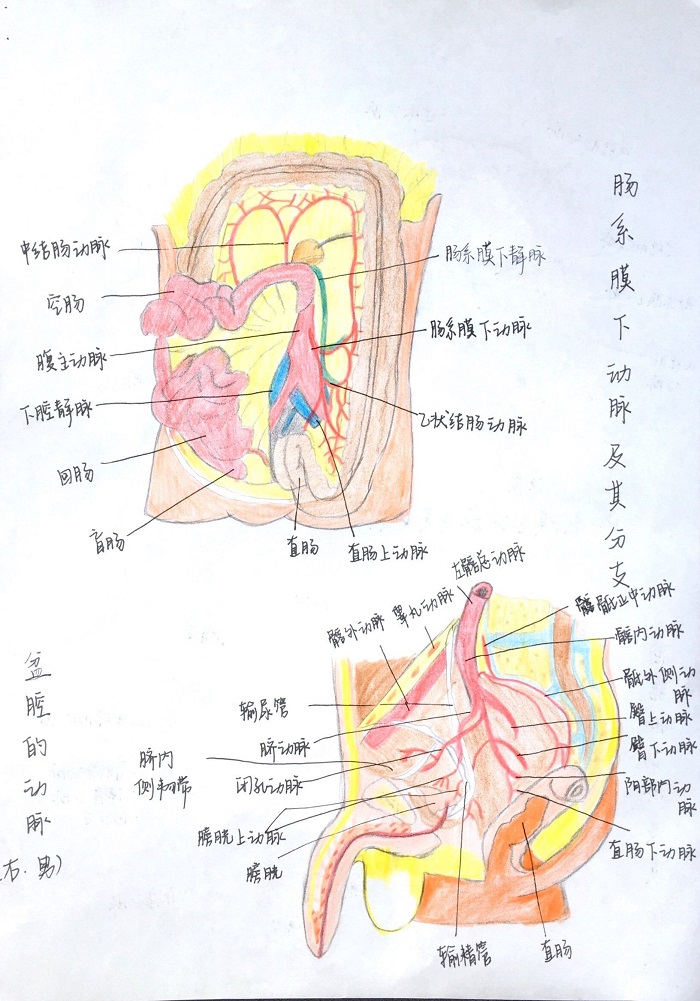 肠系膜下动脉及其分支
中结肠动脉
空肠
腹主动脉
下腔静脉
回肠
盲肠
直肠
直肠上动脉
肠系膜下静脉
肠系膜下动脉
乙状结肠动脉
盆腔的动脉
右.男)
左髂总动脉
睾丸动脉
髂外动脉
输尿管
脐动脉
脐内
侧韧带
闭孔动脉
膀胱上动脉
膀胱
输精管
直肠
骶正中动脉
髂内动脉
骶外侧动
脉
臀上动脉
臀下动脉
阴部内动
脉
直肠下动脉